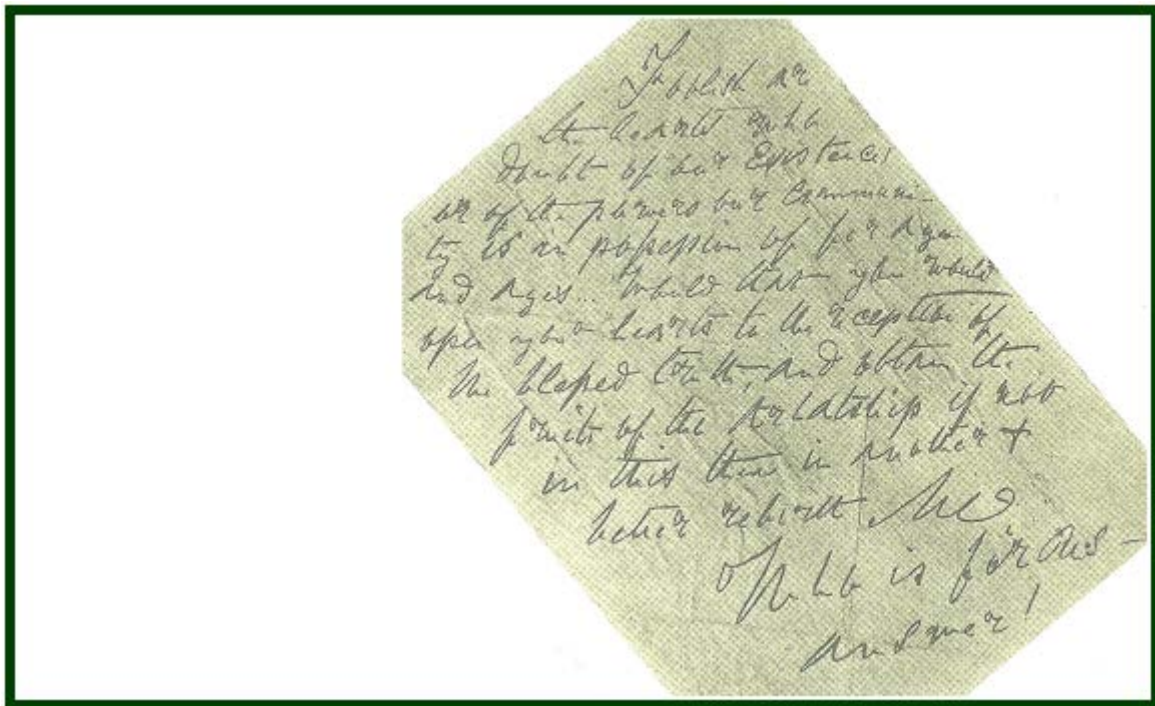 Foolish are
the hearts who
doubt of our Existence!
or of the powers our Communi-
ty is in possession of for ages
and ages... Would that you would
open your hearts to the reception of
the blessed truth, and obtain the
fruits of the Arhatship if not
in this then in another &
better rebirth. M∴
Who is for us –
answer!